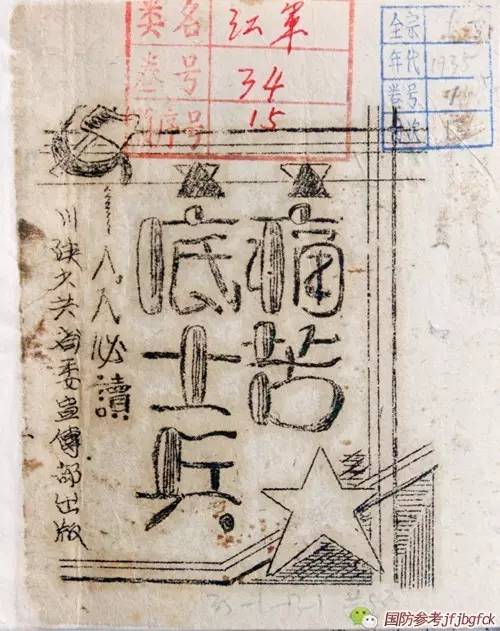 类名 红军
卷号 34
序号 15
全宗
年代 1935
卷号
件次
痛苦
底士兵。
人人必讀
川陕少共省委宣傳部出版
国防参考jfjbgfck